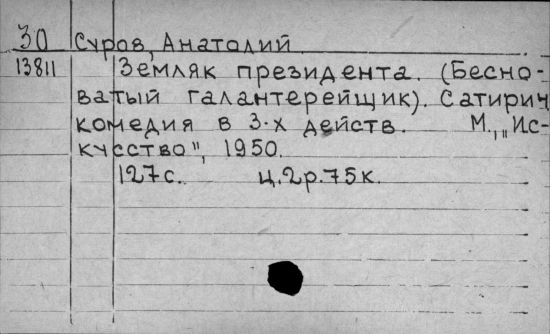 30 Суров, Анатолий
13811 Земляк президента. (Бесно-
ватый галантерейщик). Сатирич
комедия в 3-х действ. М., „Ис-
кусство", 1950.
127с. ц.2р.75к.